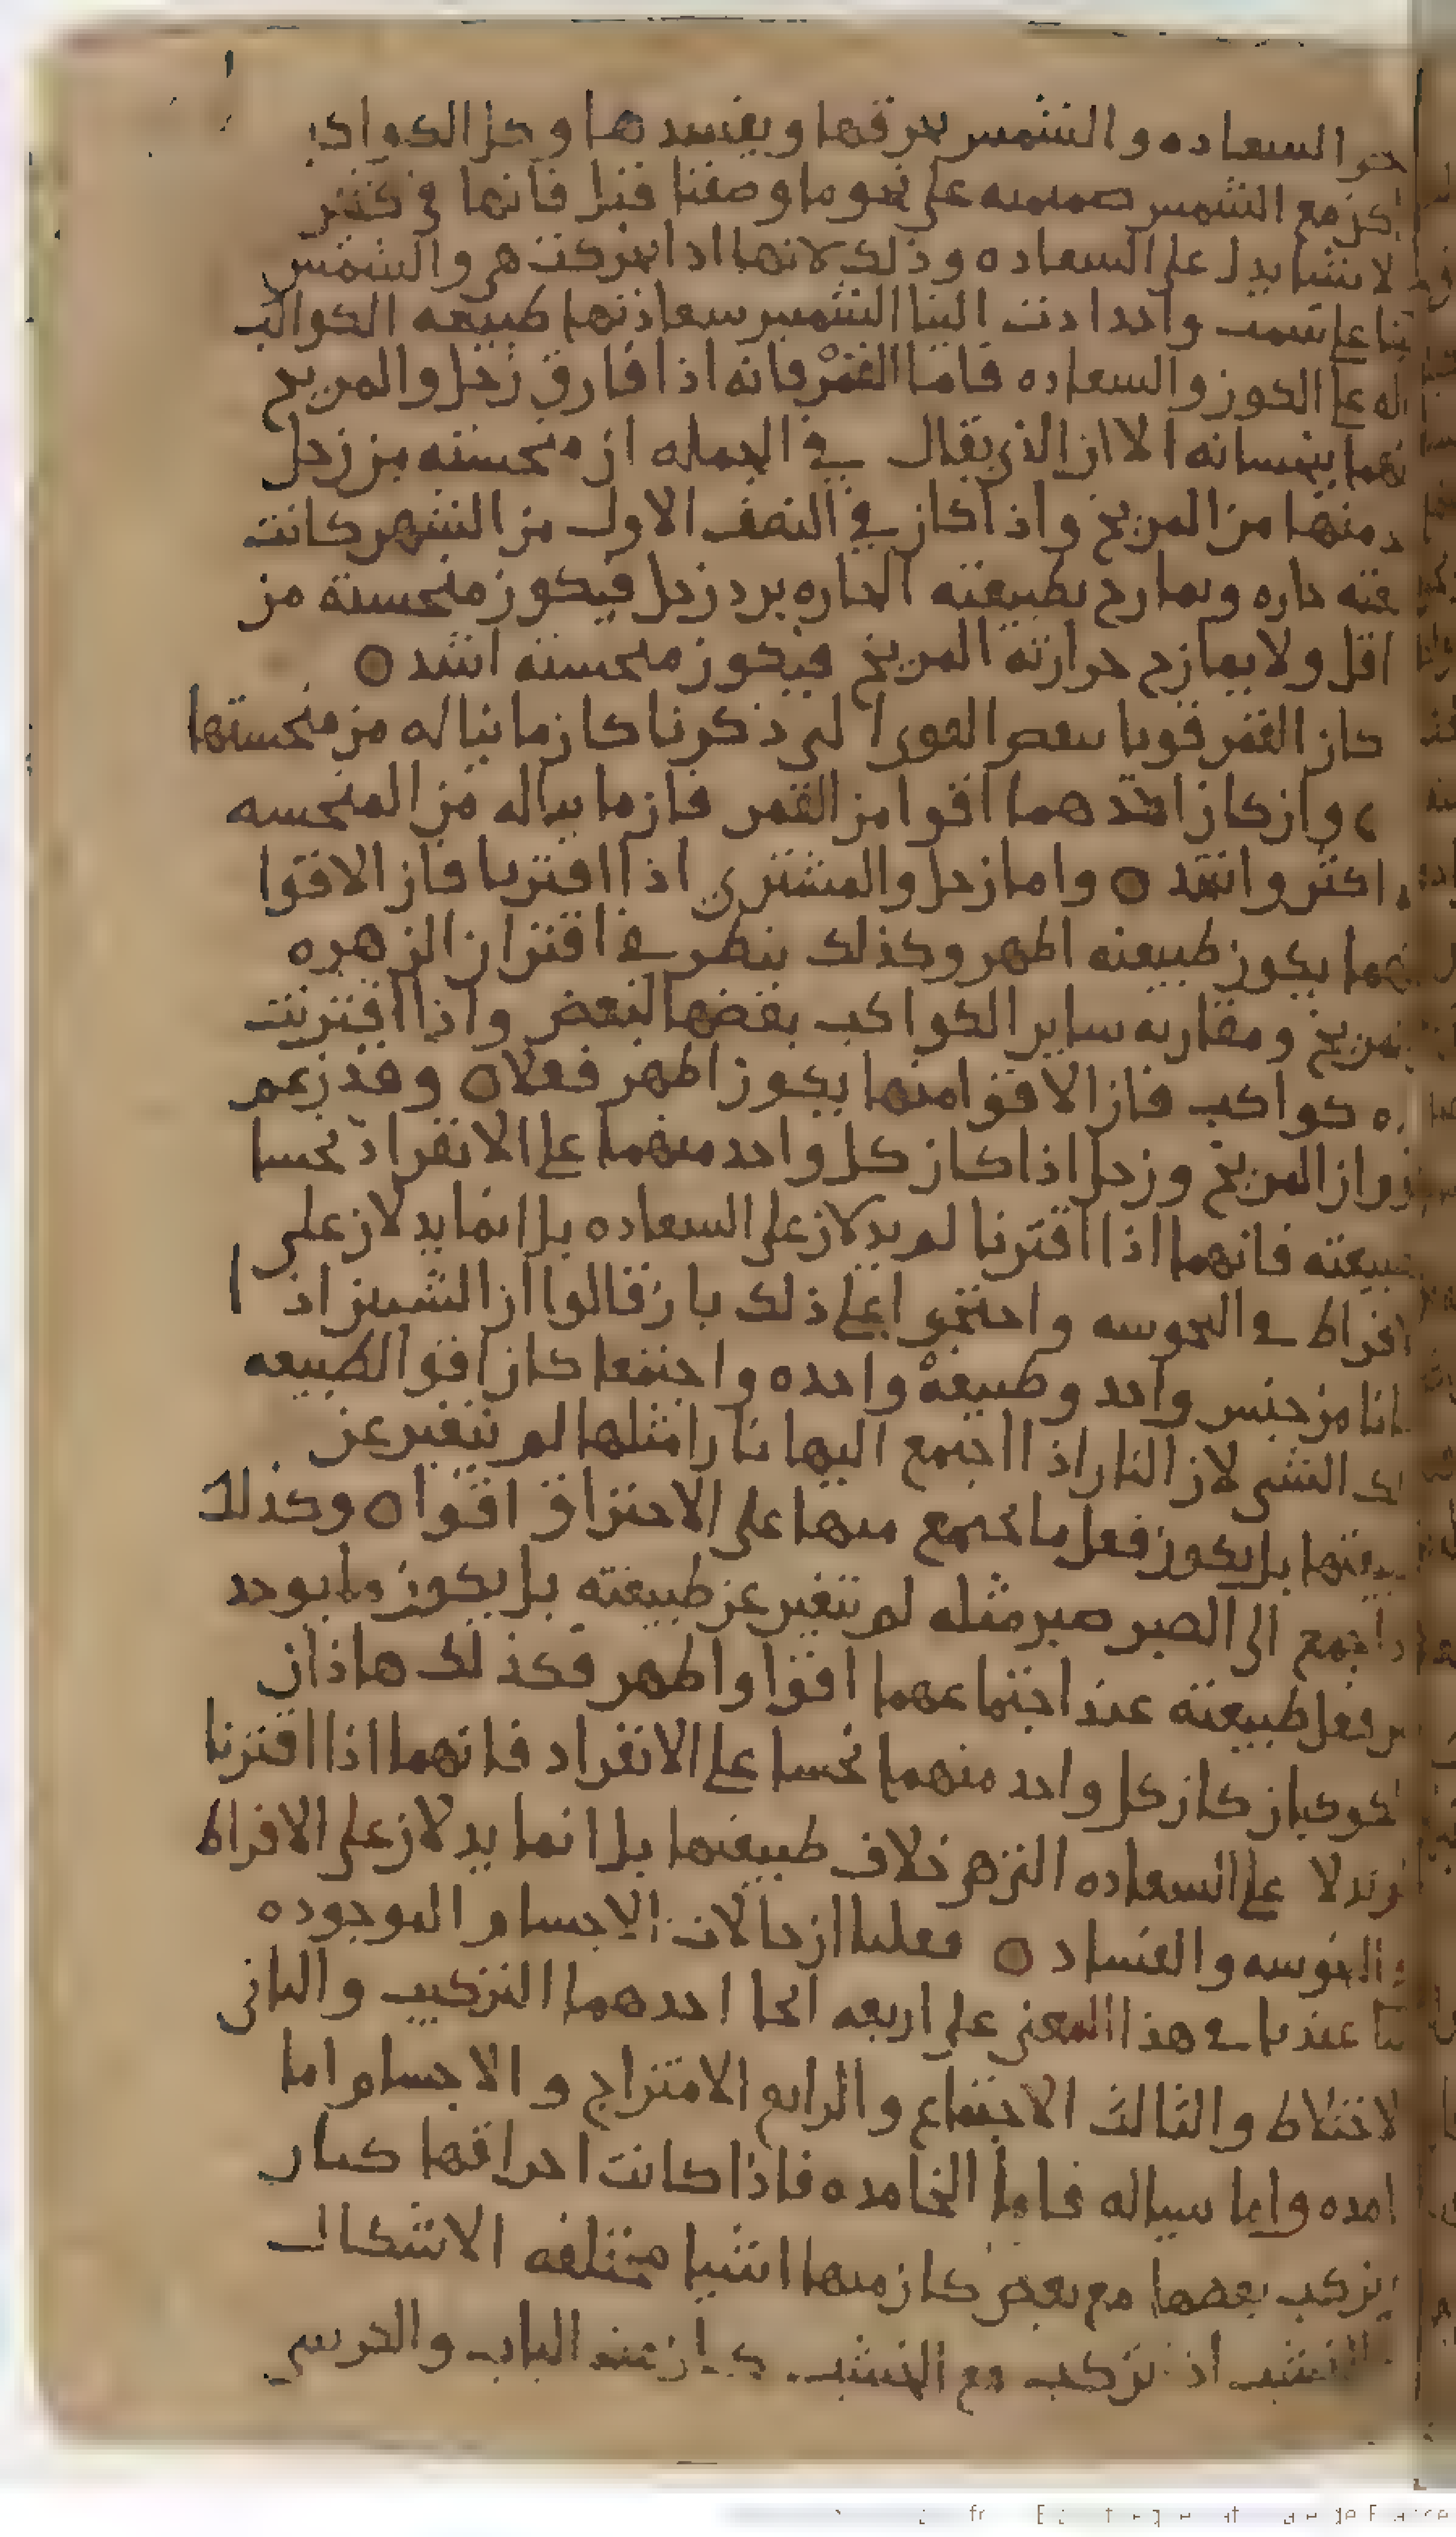 السعاده والشمس تحرقها ويفسدها وكل الكواكب
مع الشمس صميميه على نحو ما وصفنا قبل فانها في كثير
الاشيا يدل على السعاده وذلك لانها اذا اشتركت هي والشمس
على سمت واحد ادت الينا الشمس سعادتها طبيعه الكواكب
على الكون والسعاده فاما القمر فانه اذا فارق زحل والمريخ
ينحسانه الا ان الذي يقال في الجمله ان منحسته من زحل
منها من المريخ واذا كان في النصف الاول من الشهر كانت
حاره ويمازج بطبيعته الحاره برد زحل فيكون منحسته من
اقل ولا يمازج حرارته المريخ فيكون منحسته اشد ه
كان القمر قويا ببعض القوى التي ذكرنا كان ما يناله من منحستها
وان كان احدهما اقوا من القمر فان ما يناله من المنحسه
اكثر واشد ه واما زحل والمشتري اذا اقترنا فان الاقوا
يكون طبيعته اظهر وكذلك ينظر في اقتران الزهره
ومقاربه ساير الكواكب بعضها لبعض واذا اقترنت
كواكب فان الاقوا منها يكون اظهر فعلا ه وقد زعم
ان المريخ وزحل اذا كان كل واحد منهما على الانفراد نحسا
فانهما اذا اقترنا لم يدلان على السعاده بل انما يدلان على
افراط في النحوسه واحتجوا على ذلك بان قالوا ان الشيين اذا
من جنس واحد وطبيعة واحده واجتمعا كان اقوا لطبيعه
الشي لان النار اذا اجتمع اليها نارا مثلها لم تتغير عن
بل يكون فعل ما يجتمع منها على الاحتراق اقوا ه وكذلك
الى الصبر صبر مثله لم تتغير عن طبيعته بل يكون ما يوجد
فعل طبيعته عند اجتماعهما اقوا واظهر فكذلك هاذان
كان كل واحد منهما نحسا على الانفراد فانهما اذا اقترنا
على السعاده التي هي خلاف طبيعتها بل انما يدلان على الافراط
والفساد ه فعلنا ان حالات الاجسام الموجوده
عندنا في هذا المعنى على اربعه انحا احدهما التركيب والثاني
الاختلاط والثالث الاجتماع والرابع الامتزاج والاجسام اما
واما سياله فاما الجامده فاذا كانت اجراقها كبار
بعضها مع بعض كان منها اشيا مختلفه الاشكال
اذ تركب مع الخشب عنه الباب والكرسي